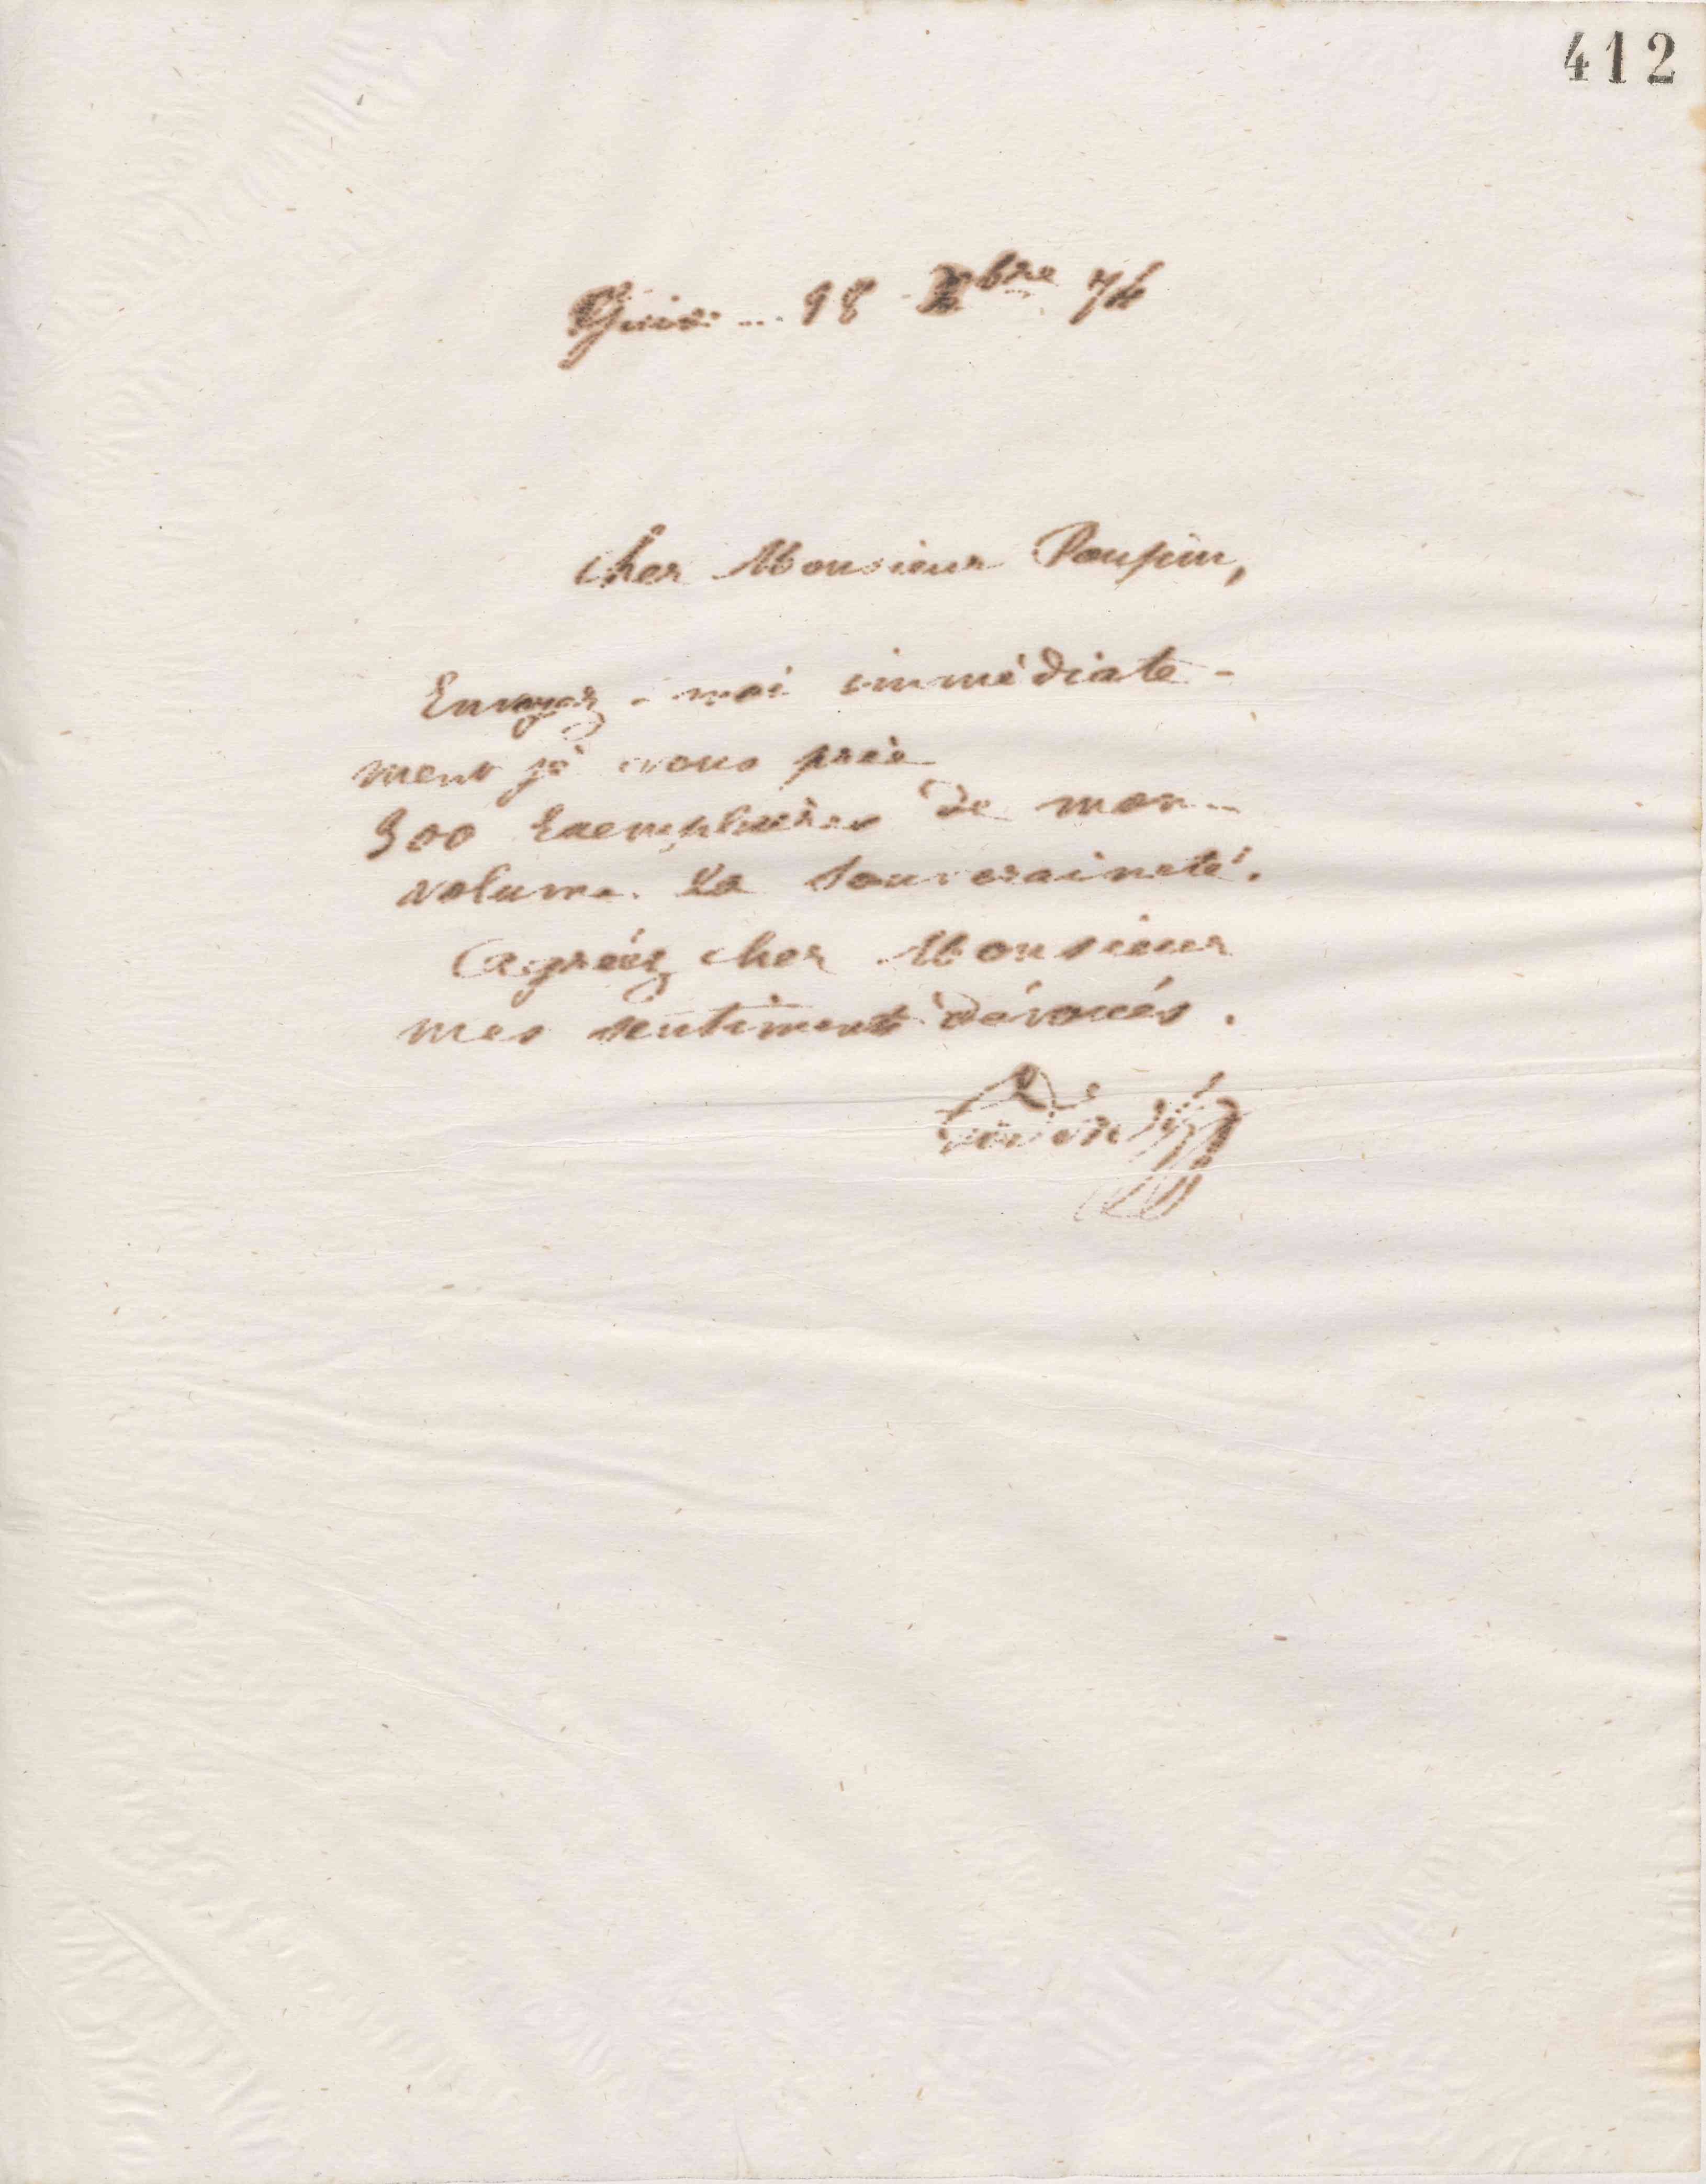 412
Guise 18 Xbre 74
cher Monsieur Poupin,
Envoyez-moi immédiate-
ment je vous prie
300 Exemplaires de mon
volume. La Souveraineté.
Agréez cher Monsieur
mes sentiments dévoués.
Godin